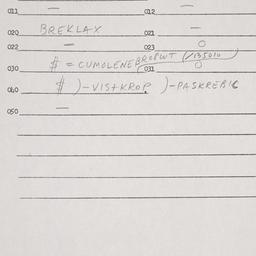 011 — 012 —
020 BREKLAX 021 —
022 — 023 0
030 $ = CUMOLENEBROPWT (/135010 031 0
040 $ ) - VIS+KROP ) - PASKREBIC
050 —